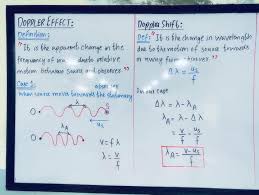 DOPPLER EFFECT:
Definition:
"It is the apparent change in the
frequency of due to relative
motion between source and observer."
Case 1:
observer
When source moves towards the stationary
O
λ
us
O
λA
v = fλ
λ = v/f
Doppler Shift:
Def: "It is the change in wavelength
due to the motion of source towards
or away from observer"
Δλ = us/f
In our case
Δλ = λ - λA
λA = λ - Δλ
= v/f - us/f
λA = v - us/f